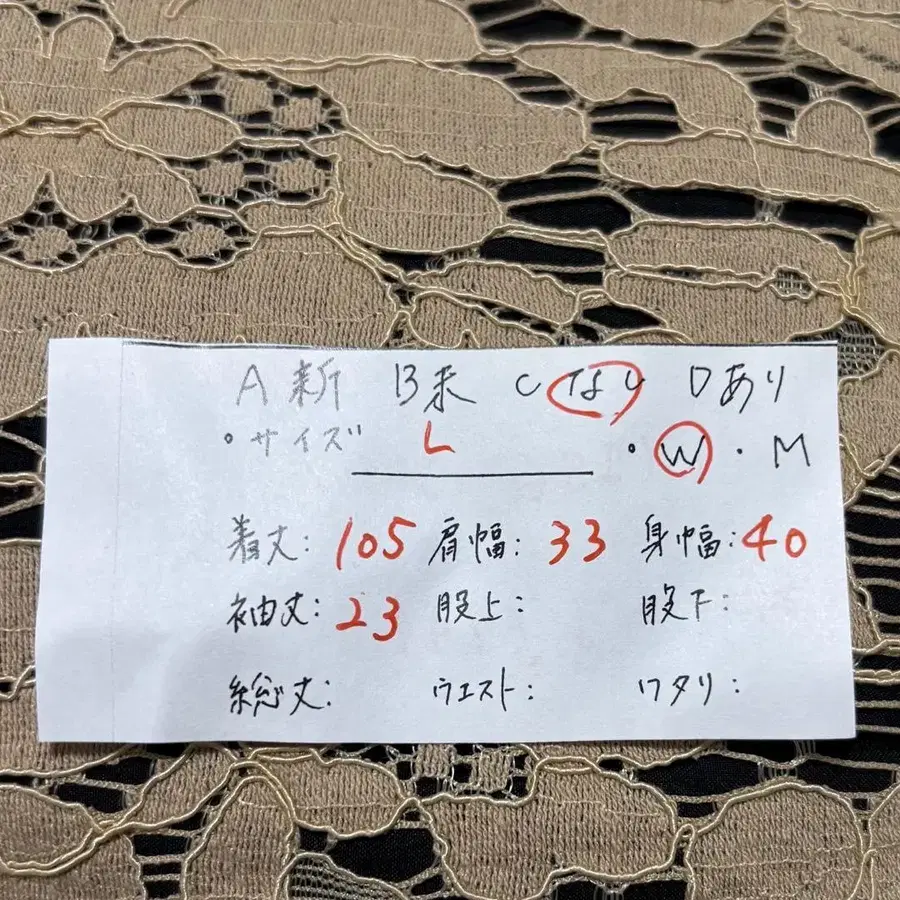 A新 B未 Cなし Dあり
・サイズ L ・W・M
着丈: 105 肩幅: 33 身幅: 40
袖丈: 23 股上: 股下:
総丈: ウエスト: ワタリ: